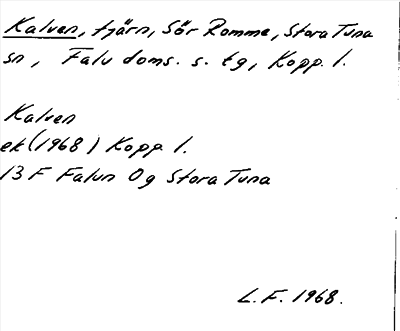 Kalven, tjärn, Sör Romme, Stora Tuna
sn, Falu doms. s. tg, Kopp. l.
Kalven
ek (1968) Kopp. l.
13 F Falun 0g Stora Tuna
L.F. 1968.